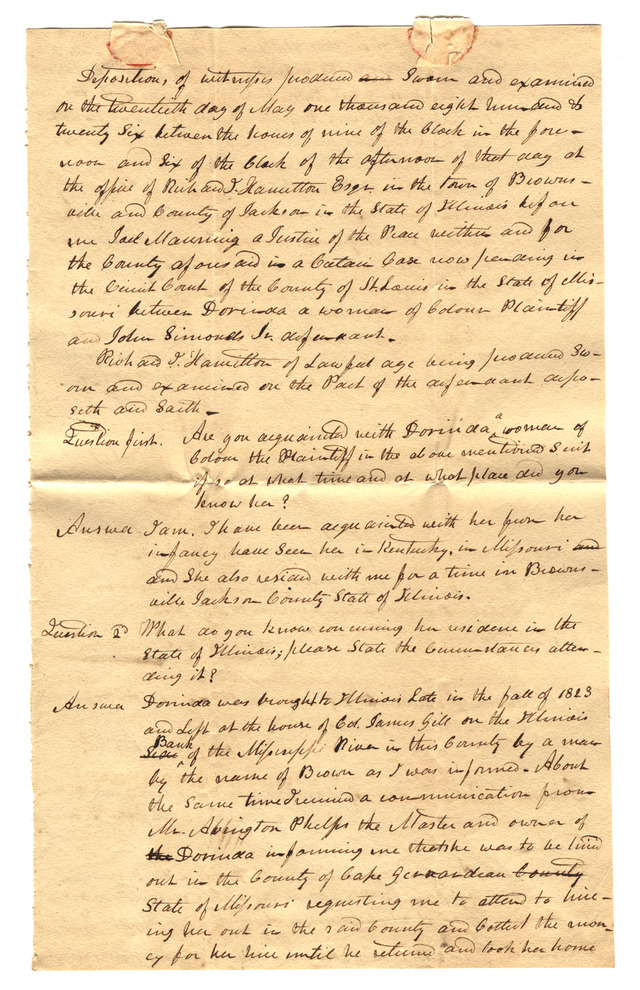 Depositions of witnesses produced Sworn and examined
on the twentieth day of May one thousand eight hundred &
twenty Six between the hours of nine of the Clock in the fore-
noon and Six of the Clock of the afternoon of that day at
the office of Richard J. Hamilton Esqr. in the town of Browns-
ville and County of Jackson in the State of Illinois before
me Joel Manning a Justice of the Peace within and for
the County aforesaid in a Certain Case now pending in
the Circuit Court of the County of St. Louis in the State of Mis-
souri between Dorinda a woman of Colour Plaintiff
and John Simonds Jr. defendant.
Richard J. Hamilton of Lawful age being produced Sw-
orn and examined on the Part of the defendant depo-
seth and Saith-
Question first. Are you acquainted with Dorinda a woman of
Colour the Plaintiff in the above mentioned Suit
if so at what time and at what place did you
know her?
Answer I am. I have been acquainted with her from her
infancy have Seen her in Kentucky, in Missouri and
and She also resided with me for a time in Browns-
ville Jackson County State of Illinois.
Question 2d What do you know concerning her residence in the
State of Illinois; please State the Circumstances atten-
ding it?
Answer Dorinda was brought to Illinois Late in the fall of 1823
and Left at the house of Col. James Gill on the Illinois
Bank of the Mississippi River in this County by a man
by the name of Brown as I was informed. About
the Same time I received a communication from
Mr. Abington Phelps the Master and owner of
the Dorinda informing me that she was to be hired
out in the County of Cape Gerardeau County
State of Missouri requesting me to attend to hire-
ing her out in the said County and Collect the mon-
ey for her hire until he returned and took her home